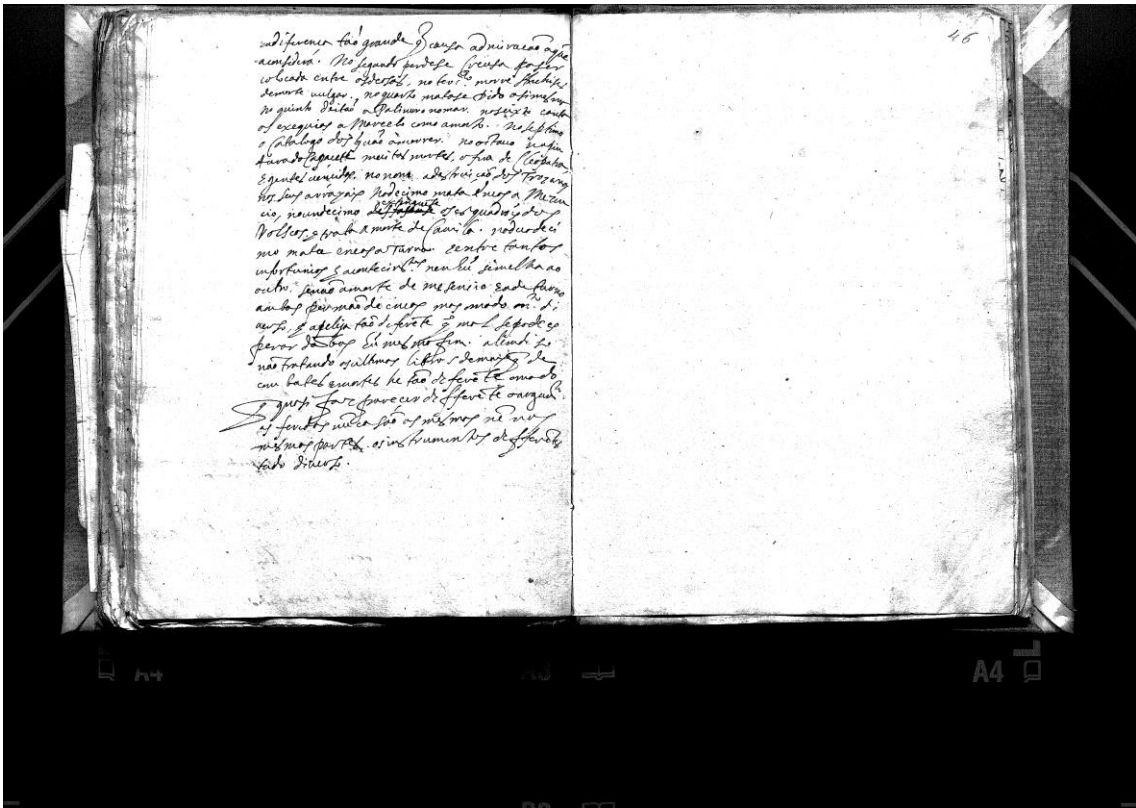 46
indiferença taõ grande q̃ causa admiracaõ aq̃
aconsidera. No segundo perdese Creusa para ser
colocada entre osdeosas, no terc.ro morre Anchises
demorte vulgar, noquarto matase Dido asimesma
no quinto deitaõ a Palinuro nomar. noseixto canta
as exequias a Marcelo como amato. No septimo
o Catalogo dos q̃ haõ amorrer. nooitavo
muitas mortes, a fua de Cleopatra
E gentes vencidas. nonono adestruicaõ dos Troyanos
nos seus arrayais Nodecimo mata Eneas a Mezen
cio, noundecimo osesquadrões dos
Volscos, e trata a morte de Camila. noduodeci
mo mata eneas a Turno. eentre tantos
infortunios e acontecim.tos nenhũ simelha ao
outro. senaõ amorte de mesencio eade turno
ambos por maõ de eneas mas modo m.to di
verso, e apeleja taõ diferẽte q̃ mal sepode es
perar dambos hũ mesmo fim. alemdisso
naõ tratando osultimos libros demais q̃ de
combates emortes he taõ diferẽte omodo
q̃ quasi faz parecer differẽte oargum.to
as feridas nũca saõ as mesmas nẽ nas
mesmas partes. osinstrumentos differẽtes
tudo diverso.
A4
A3
A4